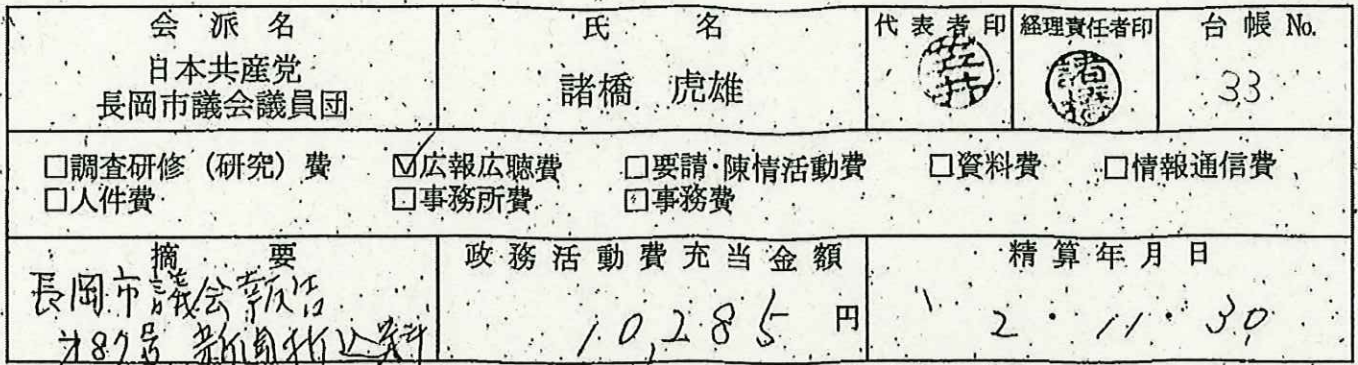 会派名 氏名 代表者印 経理責任者印 台帳 No.
日本共産党
長岡市議会議員団
諸橋 虎雄
33
□調査研修（研究）費 ☑広報広聴費 □要請・陳情活動費 □資料費 □情報通信費
□人件費 □事務所費 □事務費
摘要 政務活動費充当金額 精算年月日
長岡市議会報告
第87号 新聞折込料
10,285 円
2・11・30